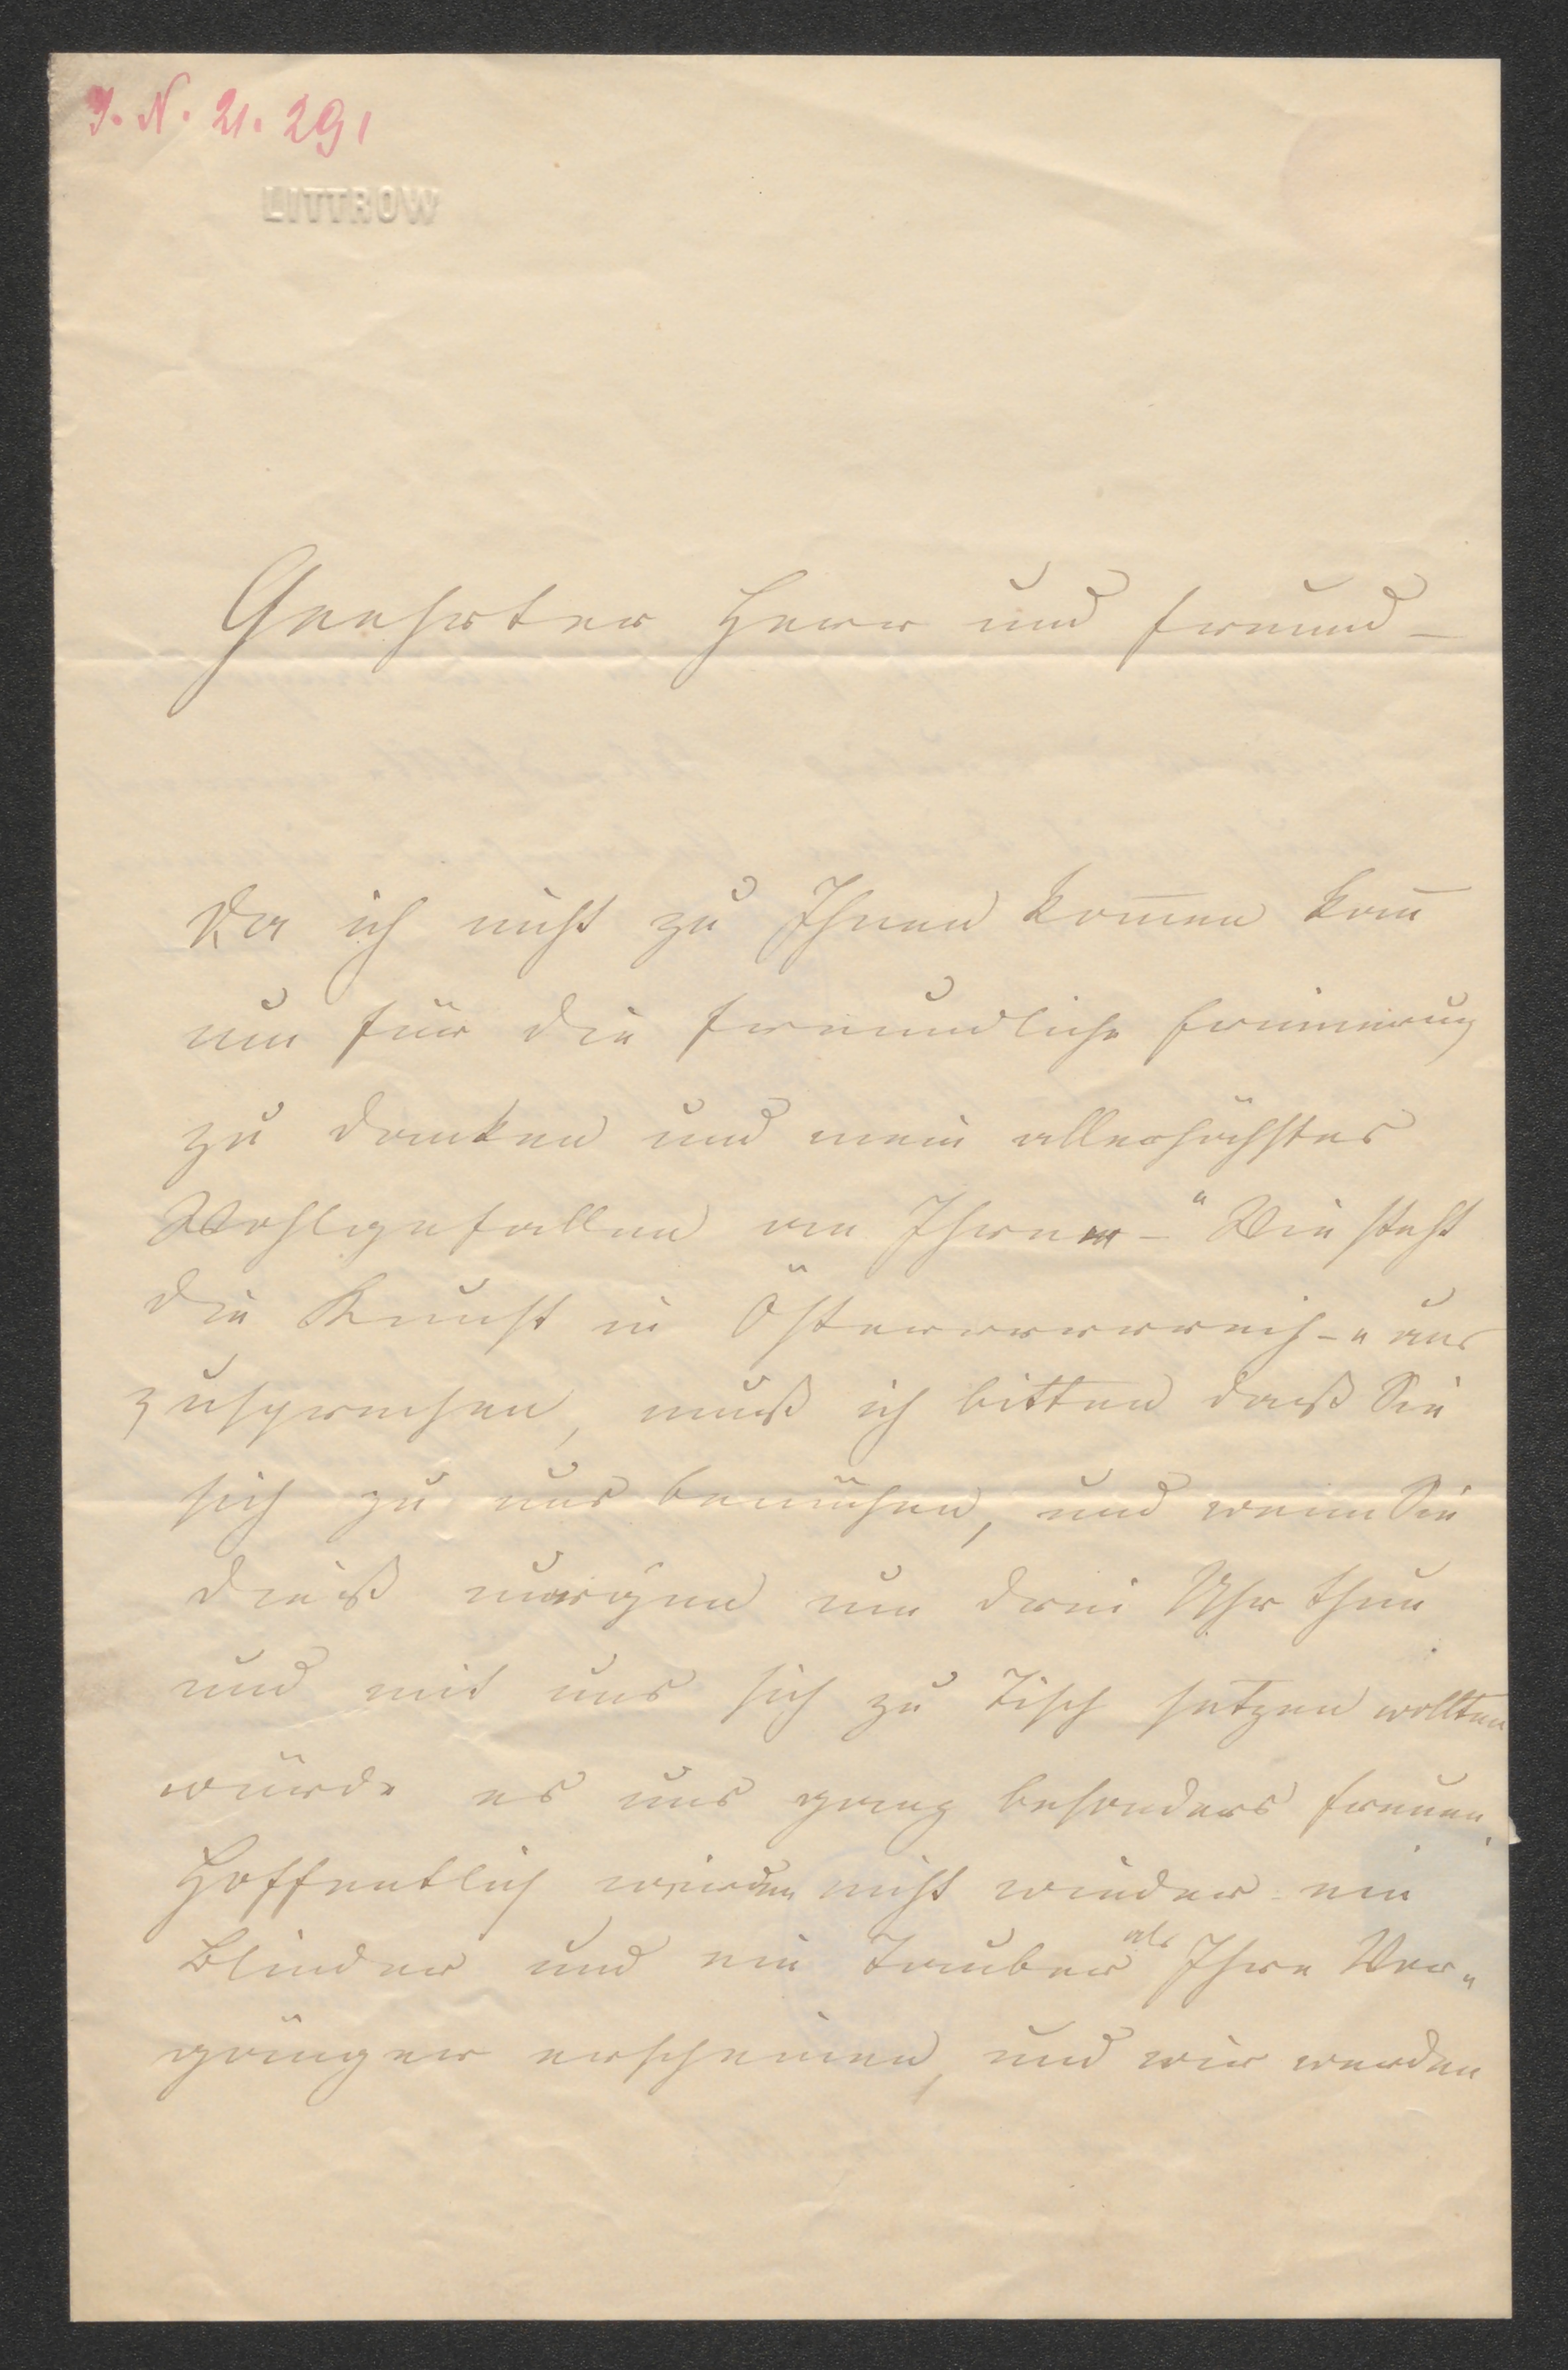 I. N. 21. 291
LITTROW
Geehrter Herr und Freund –
Da ich nicht zu Ihnen kom̅en kan̅
um für die freundliche Erinnerung
zu danken und mein allerhöchstes
Wohlgefallen an Ihrem – "Wie steht
die Kunst in Österrrrrreich –" aus
zusprechen, muß ich bitten daß Sie
sich zu uns bemühen, und wenn Sie
dieß morgen um drei Uhr thun
und mit uns sich zu Tisch setzen wollten
würde es uns ganz besonders freuen.
Hoffentlich werden nicht wieder ein
Blinder und ein Tauber als Ihre Vor„
gänger erscheinen, und wir werden